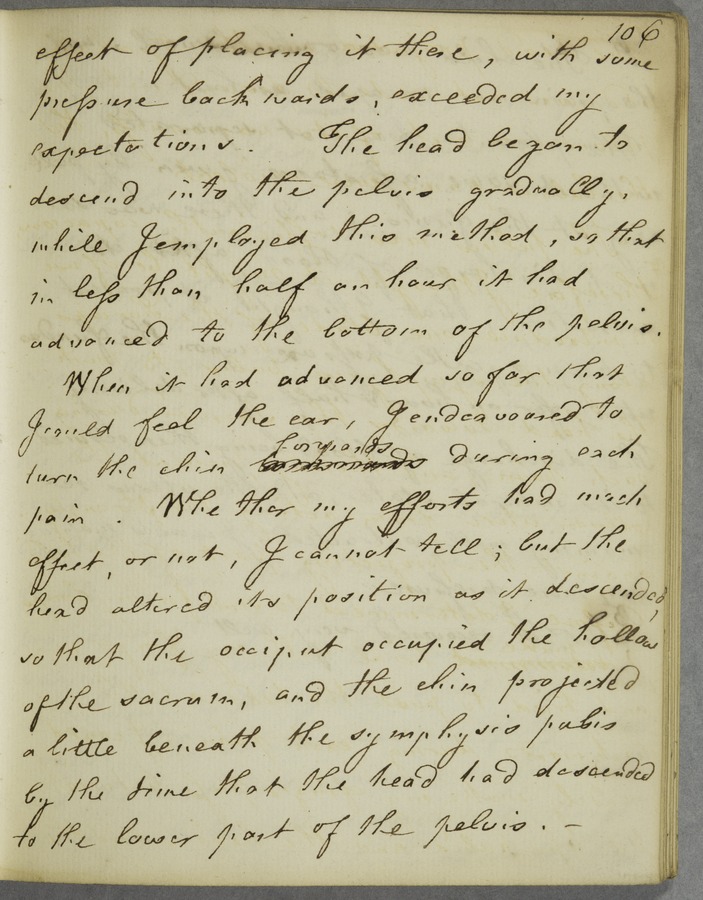 106
effect of placing it there, with some
pressure backwards, exceeded my
expectations. The head began to
descend into the pelvis gradually,
while I employed this method, so that
in less than half an hour it had
advanced to the bottom of the pelvis.
When it had advanced so far that
I could feel the ear, I endeavoured to
forwards
turn the chin during each
pain. Whether my efforts had much
effect, or not, I cannot tell; but the
head altered its position as it descended,
so that the occiput occupied the hollow
of the sacrum, and the chin projected
a little beneath the symphysis pubis
by the time that the head had descended
to the lower part of the pelvis. —